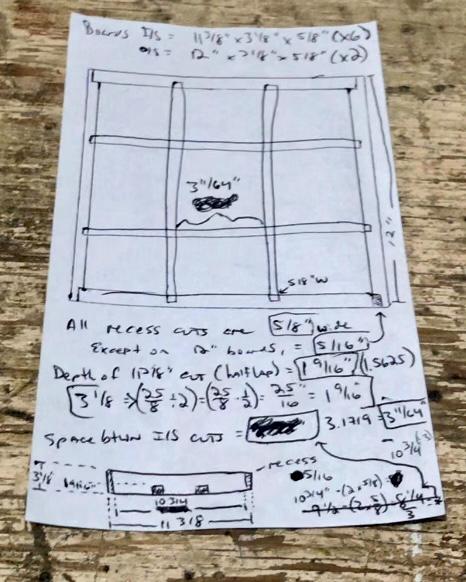 Boards I/S = 11 3/8" x 3 1/8" x 5/8" (x6)
O/S = 12" x 3 1/8" x 5/8" (x2)
3 11/64"
12"
5/8" W
All recess cuts are 5/8" wide
Except on 12" boards, = 5/16"
Depth of 11 3/8" cut (half lap) = 1 9/16" (1.5625)
3 1/8 → (25/8 ÷ 2) = (25/8 · 1/2) = 25"/16 = 1 9/16
Space btwn I/S cuts = 3.1719 = 3 11/64"
recess
5/16
3 1/8
1 9/16"
10 3/4
11 3/8
10 3/4" - (2 x 5/8) =